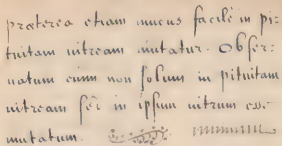 præterea etiam mucus facile in pi-
tuitam vitream mutatur. Obser-
uatum enim non solum in pituitam
vitream sed in ipsum vitrum esse
mutatum.